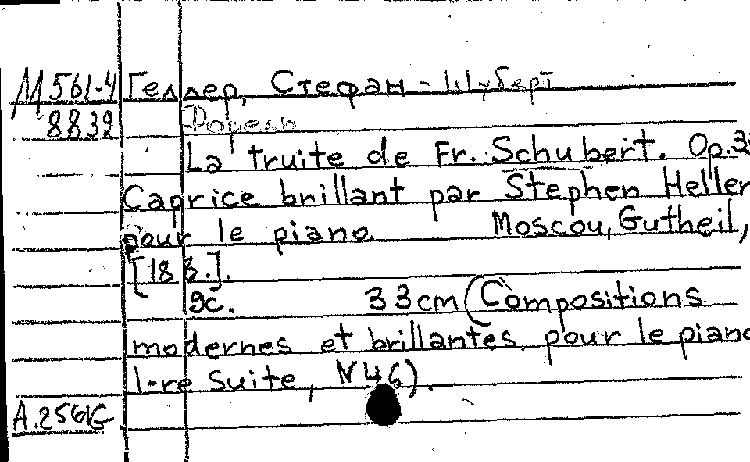 М561-4 Геллер, Стефан - Шуберт
8832 Форель
La truite de Fr. Schubert. Op.3
Caprice brillant par Stephen Heller
pour le piano Moscou, Gutheil,
[18 .].
9с. 33cm (Compositions
modernes et brillantes pour le piano
1-re Suite, N46).
A.2561G